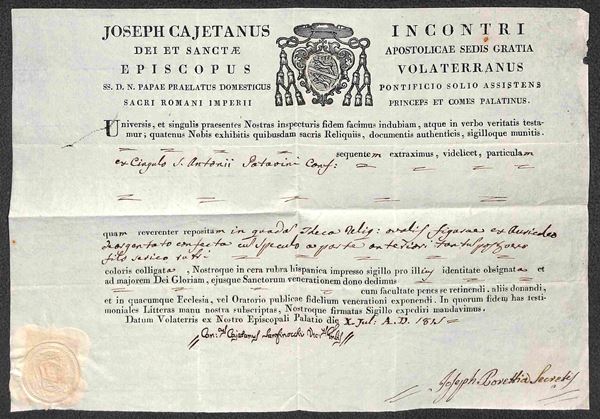 JOSEPH CAJETANUS INCONTRI
DEI ET SANCTÆ APOSTOLICAE SEDIS GRATIA
EPISCOPUS VOLATERRANUS
SS. D. N. PAPAE PRAELATUS DOMESTICUS PONTIFICIO SOLIO ASSISTENS
SACRI ROMANI IMPERII PRINCEPS ET COMES PALATINUS.
Universis, et singulis praesentes Nostras inspecturis fidem facimus indubiam, atque in verbo veritatis testa-
mur; quatenus Nobis exhibitis quibusdam sacris Reliquiis, documentis authenticis, sigilloque munitis.
sequentem extraximus, videlicet, particulam
ex Cingulo S. Antonii Patavini Conf:
quam reverenter repositam in quadã Theca Reliq: ovalis figurae ex
deargentato confecta cũ speculo a parte anteriori
filo serico rub:
coloris colligata, Nostroque in cera rubra hispanica impresso sigillo pro illius identitate obsignata et
ad majorem Dei Gloriam, ejusque Sanctorum venerationem dono dedimus
cum facultate penes se retinendi, aliis donandi,
et in quacumque Ecclesia, vel Oratorio publicae fidelium venerationi exponendi. In quorum fidem has testi-
moniales Litteras manu nostra subscriptas, Nostroque firmatas Sigillo expediri mandavimus.
Datum Volaterris ex Nostro Episcopali Palatio die X Jul: A. D.
Cajetanus
Joseph Secretis